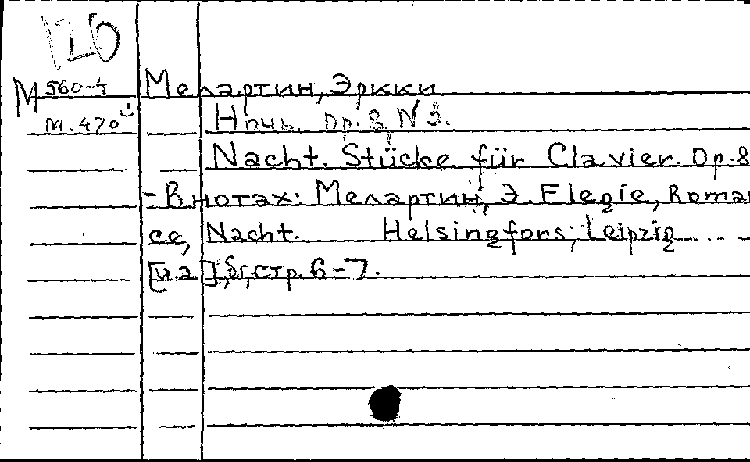 120
М 560-1 Мелартин, Эркки
м. 470 Ночь. Op. 8, N 3.
Nacht. Stücke für Clavier. Op. 8
- В нотах: Мелартин, Э. Elegie, Roman
ce, Nacht. Helsingfors; Leipzig
[и др.], стр. 6-7.